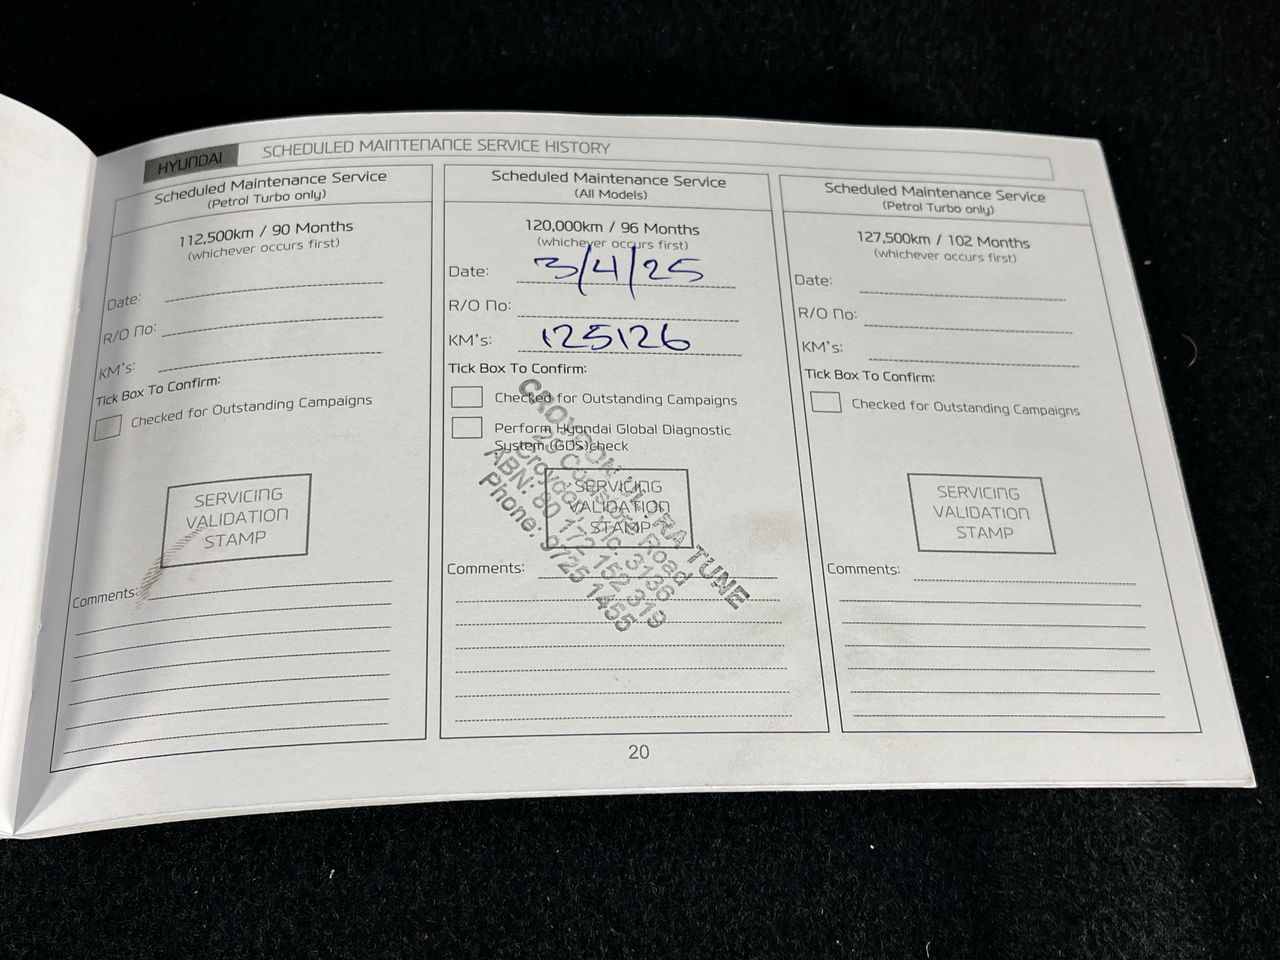 HYUNDAI
SCHEDULED MAINTENANCE SERVICE HISTORY
Scheduled Maintenance Service
(Petrol Turbo only)
112,500km / 90 Months
(whichever occurs first)
Date:
R/O No:
KM's:
Tick Box To Confirm:
Checked for Outstanding Campaigns
SERVICING
VALIDATION
STAMP
Comments:
Scheduled Maintenance Service
(All Models)
120,000km / 96 Months
(whichever occurs first)
Date: 3/4/25
R/O No:
KM's: 125126
Tick Box To Confirm:
Checked for Outstanding Campaigns
Perform Hyundai Global Diagnostic
System (GDS)check
SERVICING
VALIDATION
STAMP
CROYDON ULTRA TUNE
29 Road
Croydon Vic. 3136
ABN: 80 172 152 319
Phone: 9725 1455
Comments:
Scheduled Maintenance Service
(Petrol Turbo only)
127,500km / 102 Months
(whichever occurs first)
Date:
R/O No:
KM's:
Tick Box To Confirm:
Checked for Outstanding Campaigns
SERVICING
VALIDATION
STAMP
Comments:
20